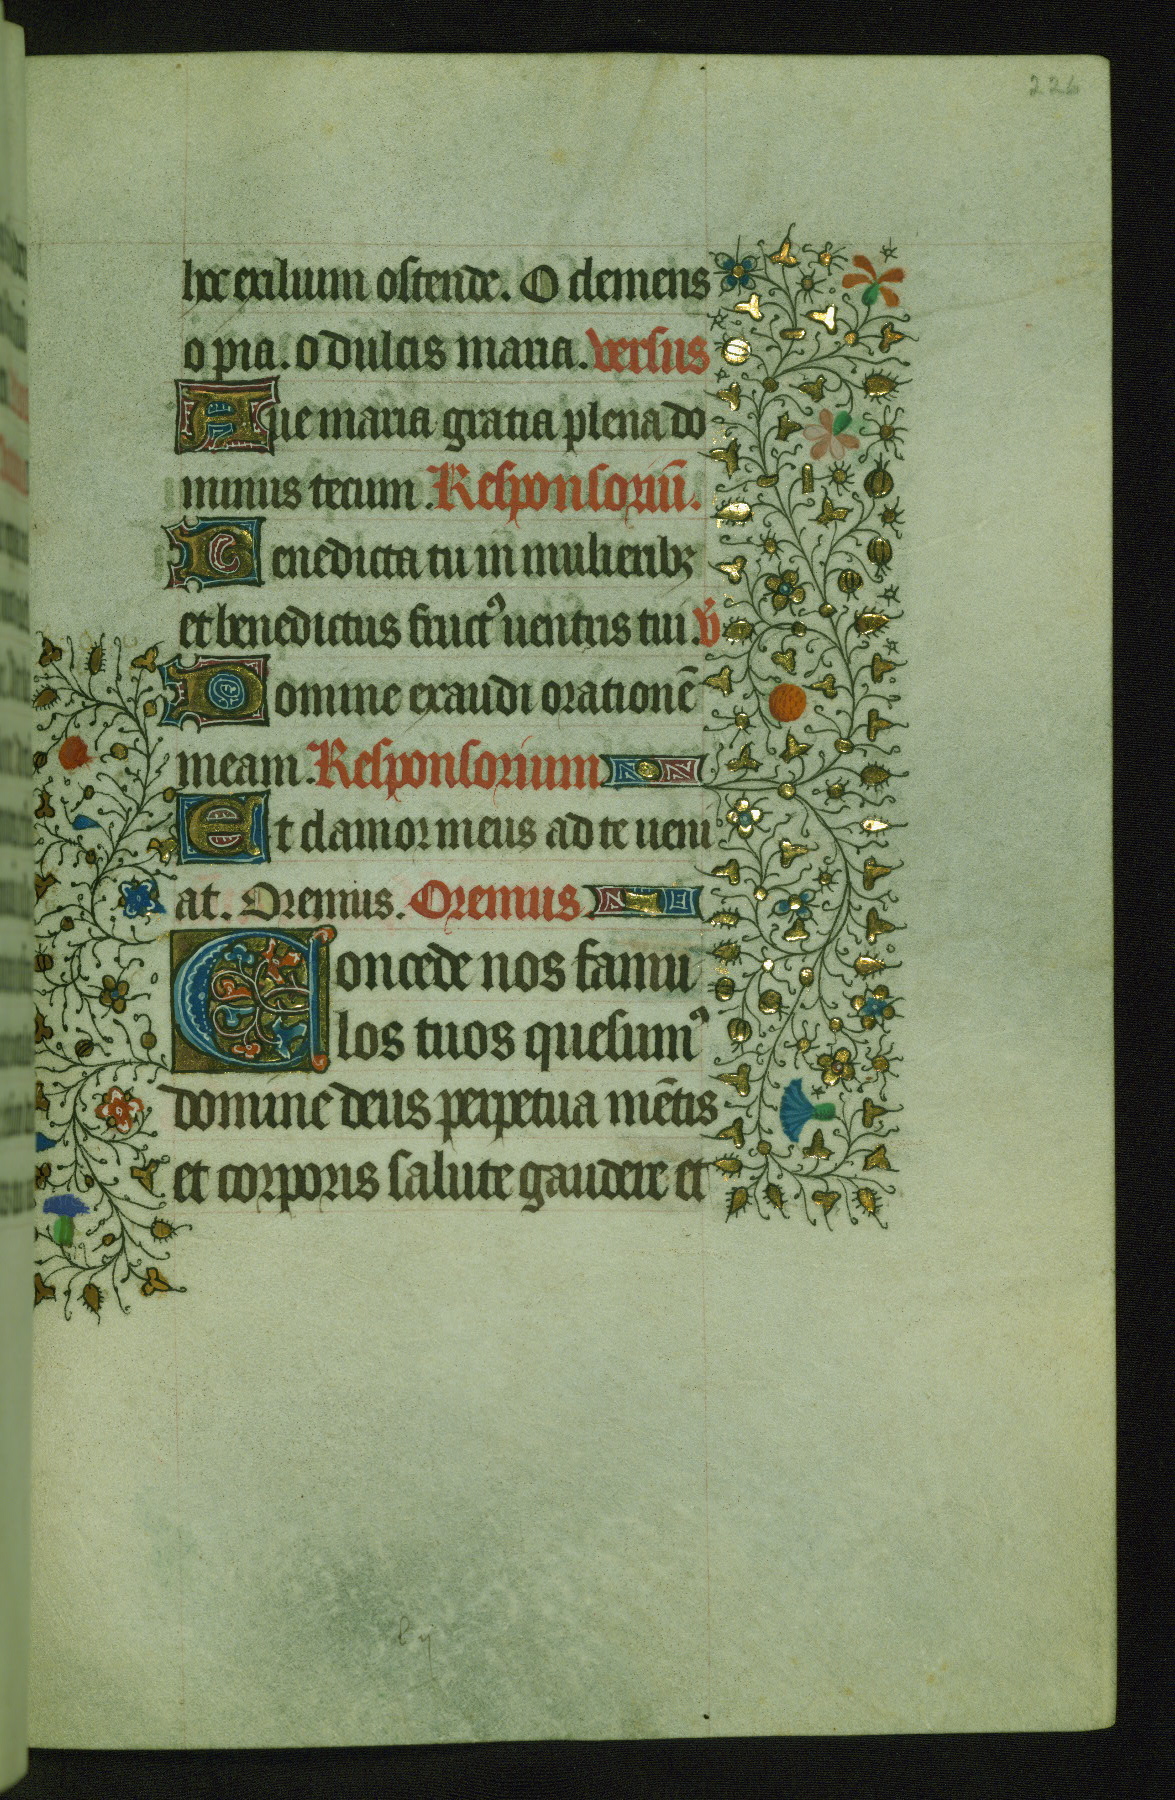 226
hoc exilium ostende. O clemens
o pia. o dulcis maria. versus
Aue maria gratia plena do
minus tecum. Responsoriū.
Benedicta tu in mulieribꝫ
et benedictus fructꝰ uentris tui. v̄
Domine exaudi orationē
meam. Responsorium
Et clamor meus ad te ueni
at. Oremus. Oremus
Concede nos famu
los tuos quesumꝰ
domine deus perpetua mētis
et corporis salute gaudere et